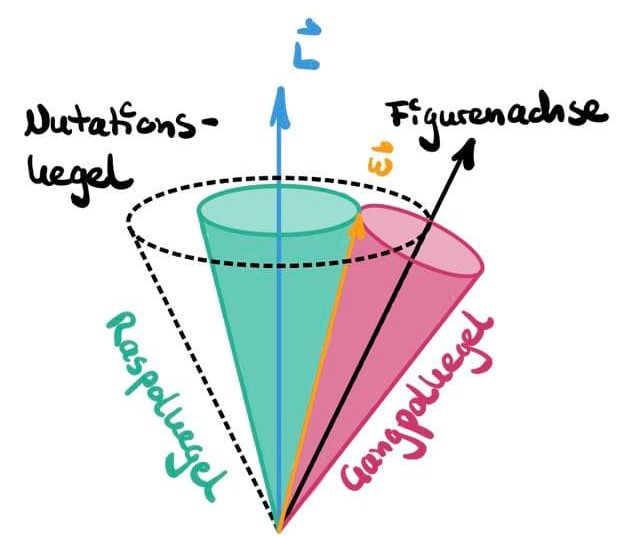 L⃗
Nutations-
kegel
Figurenachse
ω⃗
Raspolkegel
Gangpolkegel